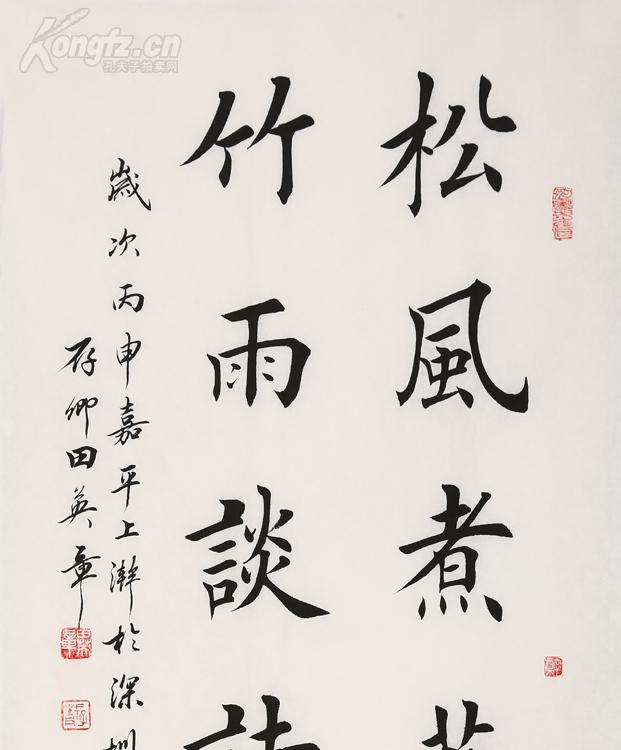 松風煮
竹雨談
歲次丙申嘉平上澣於深
存卿田英章
Kongfz.cn
孔夫子拍卖网